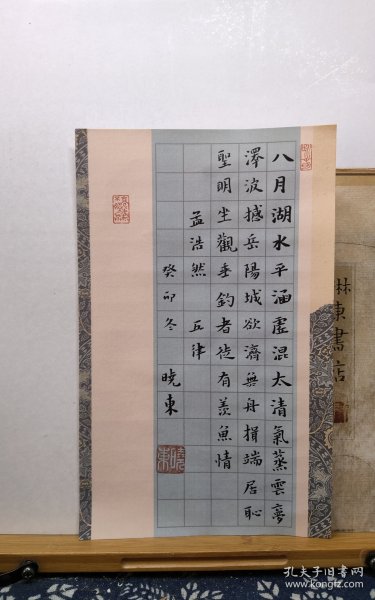 八月湖水平涵虛混太清氣蒸雲夢
澤波撼岳陽城欲濟無舟楫端居恥
聖明坐觀垂釣者徒有羨魚情
孟浩然 五律
癸卯冬 曉東
曉東
林東書店
孔夫子旧书网
www.kongfz.com